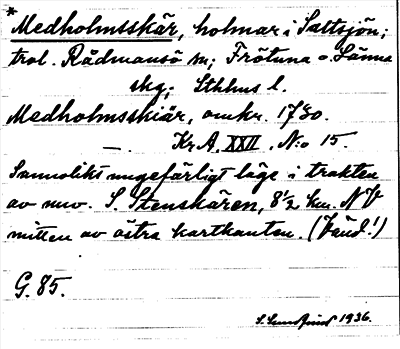 * Medholmsskär, holmar i Saltsjön;
trol. Rådmansö sn; Frötuna o. Länna
skg; Sthlms l.
Medholmsskiär, omkr. 1730.
—. Kr.A. XXII. N:o 15.
Sannolikt ungefärligt läge i trakten
av nuv. S. Stenskären, 8 1/2 km. NV
mitten av östra kartkanten. (Vänd!)
G. 85.
S. Sundqvist 1936.